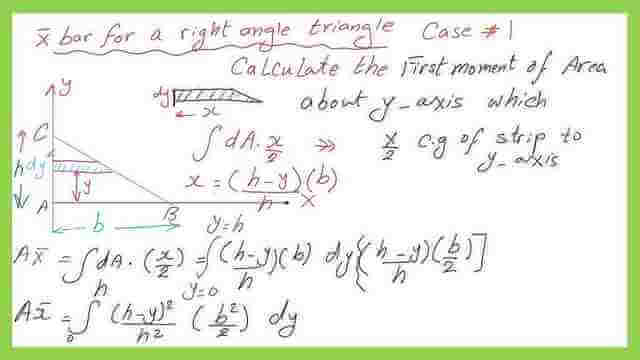 x̄ bar for a right angle triangle Case #1
Calculate the First moment of Area
about y-axis which
dy
x
∫ dA. x/2 >> x/2 c.g of strip to
y-axis
x = (h-y)(b)/h
y
C
h dy
y
A
B
x
b
Ax̄ = ∫ dA. (x/2) = ∫ y=0 y=h (h-y)(b)/h dy [(h-y)/h (b/2)]
Ax̄ = ∫ 0 h (h-y)²/h² (b²/2) dy